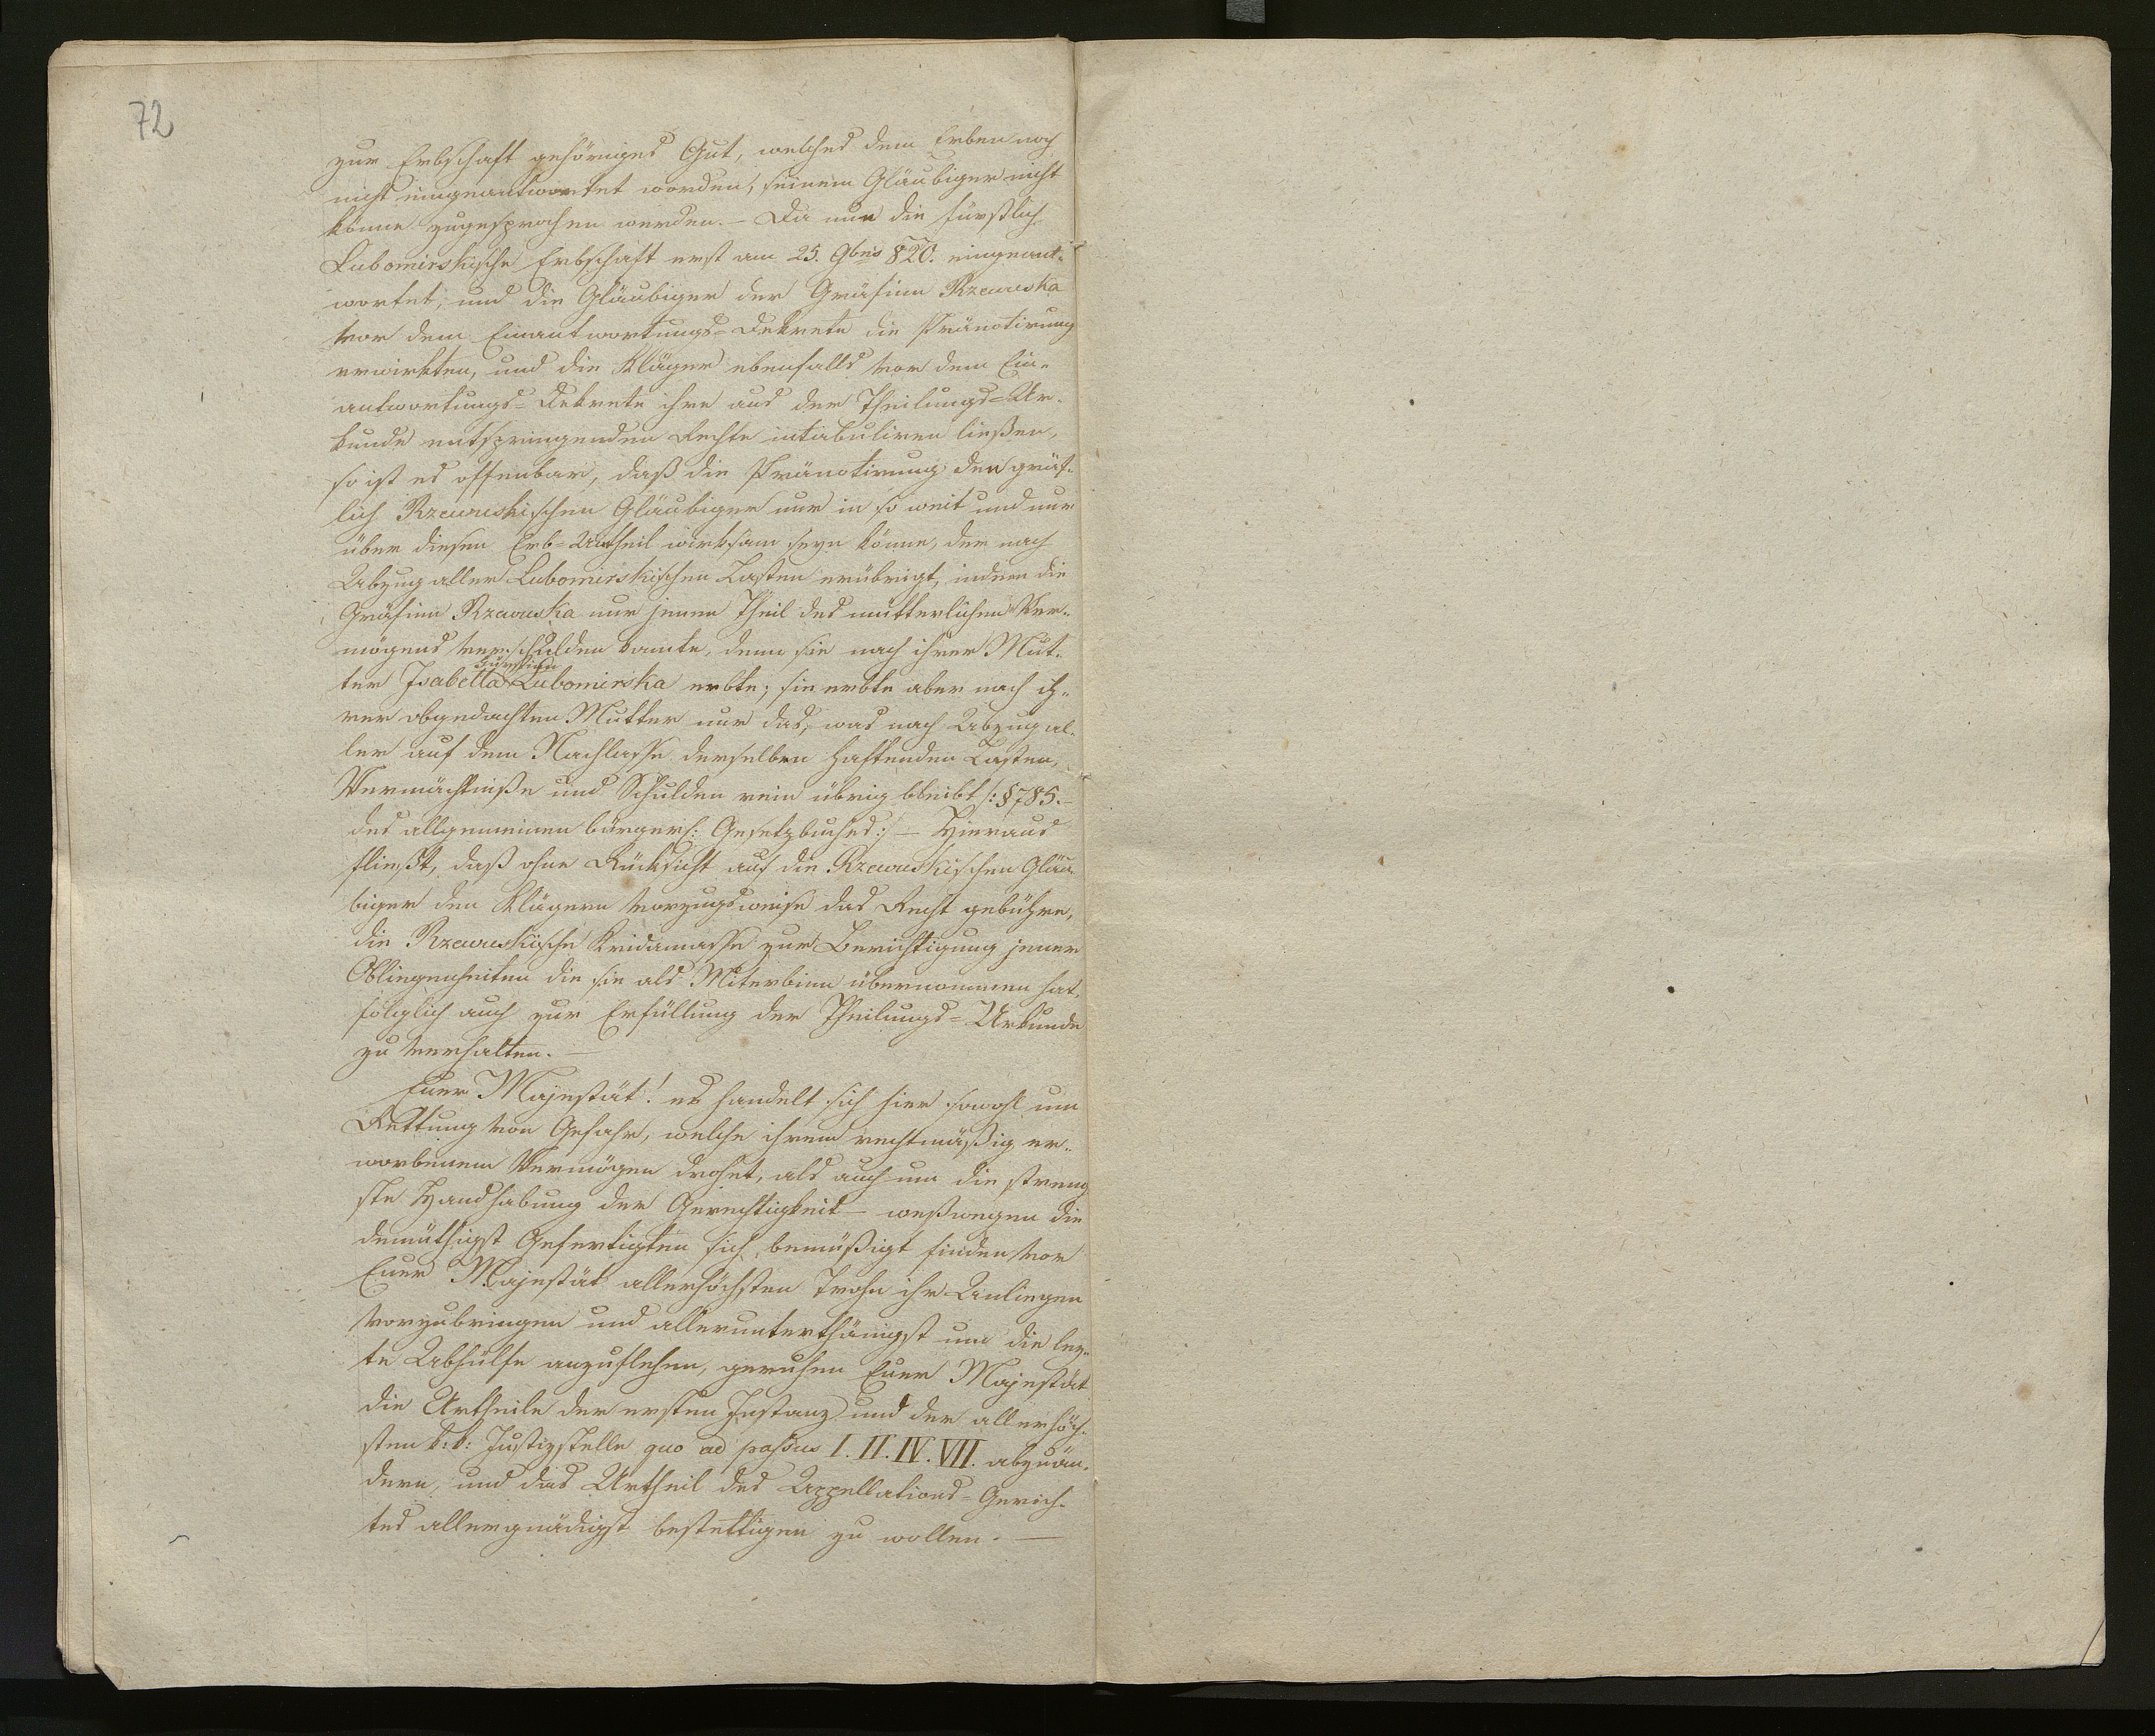 72
zur Erbschaft gehöriges Gut, welches dem Erben noch
nicht eingeantwortet worden, seinem Gläubiger nicht
könne zugesprochen werden. – Da nun die fürstlich
Lubomirskische Erbschaft erst am 25. 9bris 820. eingeant-
wortet, und die Gläubiger der Gräfinn Rzewuska
vor dem Einantwortungs-Dekrete die Pränotirung
erwirkten, und die Kläger ebenfalls vor dem Ein-
antwortungs-Dekrete ihre aus der Theilungs-Ur-
kunde entspringenden Rechte intabuliren ließen,
so ist es offenbar, daß die Pränotirung der gräf-
lich Rzewuskischen Gläubiger nur in so weit und nur
über diesen Erb-Antheil wirksam seyn könne, der nach
Abzug aller Lubomirskischen Lasten erübrigt, indem die
Gräfinn Rzewuska nur jenen Theil des mütterlichen Ver-
mögens verschulden konnte, denn sie nach ihrer Mut-
ter Isabella Fürstinn Lubomirska erbte; sie erbte aber nach ih-
rer obgedachten Mutter nur das, was nach Abzug al-
ler auf dem Nachlasse derselben haftenden Lasten,
Vermächtniße und Schulden rein übrig bleibt /: § 785.
des allgemeinen bürgerl: Gesetzbuches :/ – Hieraus
fließt, daß ohne Rücksicht auf die Rzewuskischen Gläu-
biger den Klägern vorzugsweise das Recht gebühre,
die Rzewuskische Kridamasse zur Berichtigung jener
Obliegenheiten die sie als Miterbinn übernommen hat,
folglich auch zur Erfüllung der Theilungs-Urkunde
zu verhalten. –
Euer Majestät! es handelt sich hier sowohl um
Rettung von Gefahr, welche ihrem rechtmäßig er-
worbenem Vermögen drohet, als auch um die streng
ste Handhabung der Gerechtigkeit – weßwegen die
demüthigst Gefertigten sich bemüßigt finden vor
Euer Majestät allerhöchsten Trohn ihr Anliegen
vorzubringen und allerunterthänigst um die lez-
te Abhülfe anzuflehen, geruhen Euer Majestät
die Urtheile der ersten Instanz und der allerhöch-
sten k: k: Justizstelle quo ad passus I. II. IV. VII. abzuän-
dern, und das Urtheil des Appellations-Gerich-
tes allergnädigst bestettigen zu wollen. –